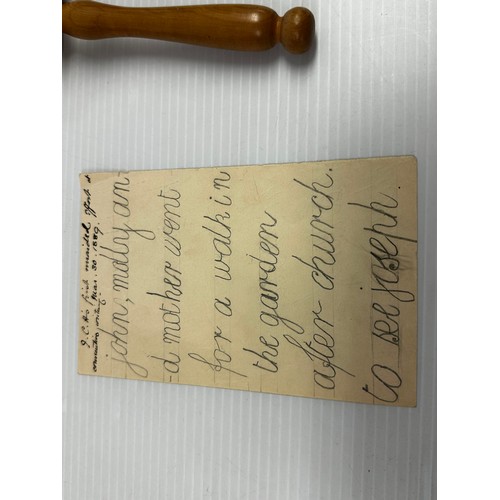 J. C. H's first unaided effort at
consecutive writing Mar. 30 1889.
john, molly an-
-d mother went
for a walk in
the garden
after church.
to see joseph.